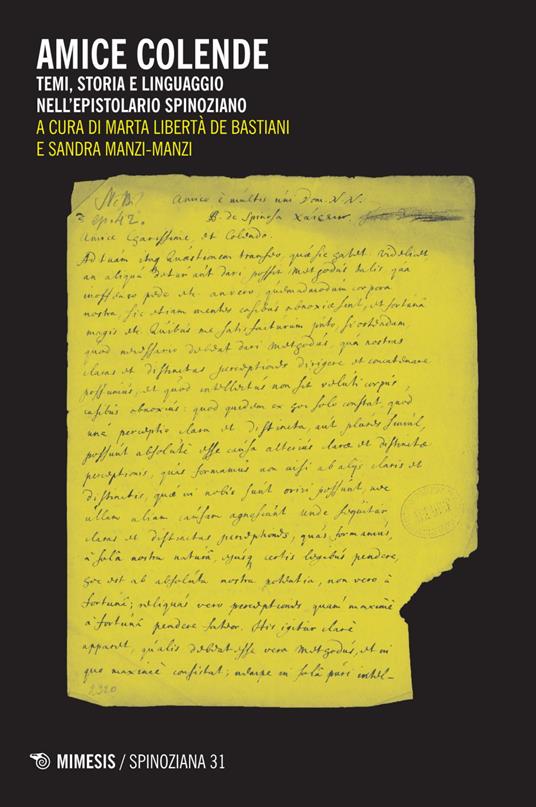 AMICE COLENDE
TEMI, STORIA E LINGUAGGIO
NELL'EPISTOLARIO SPINOZIANO
A CURA DI MARTA LIBERTÀ DE BASTIANI
E SANDRA MANZI-MANZI
ep. 42.
Amico è multis uni Dom. N.N.
B. de Spinosa
Amice Charissime, et Colendo.
Ad tuam itaq Quæstionem transeo, quæ sic habet. Videlicet
an aliqua detur aut dari possit Methodus talis qua
inoffenso pede etc. an vero, quemadmodum corpora
nostra, sic etiam mentes casibus obnoxiæ sint, et fortunâ
magis etc. Quibus me satisfacturum puto, si ostendam,
quod necessario debeat dari Methodus, qua nostras
claras et distinctas perceptiones dirigere et concatenare
possumus, et quod intellectus non sit veluti corpus,
casibus obnoxius: quod quidem ex hoc solo constat, quod
una perceptio clara et distincta, aut plures simul,
possunt absolute esse causa alterius claræ et distinctæ
perceptionis, quas formamus non nisi ab alijs claris et
distinctis, quæ in nobis sunt oriri possunt, nec
ullam aliam causam agnoscunt unde sequitur
claras et distinctas perceptiones, quas formamus,
à solâ nostra naturâ, ejusq certis legibus pendere,
hoc est ab absoluta nostra potentia, non vero à
fortunâ; reliquas vero perceptiones, quam maximè
à fortunâ pendere fateor. His igitur clarè
apparet, qualis debeat esse vera Methodus, et in
quo maximè consistat; nempe in solâ puri intel-
2320
MIMESIS / SPINOZIANA 31